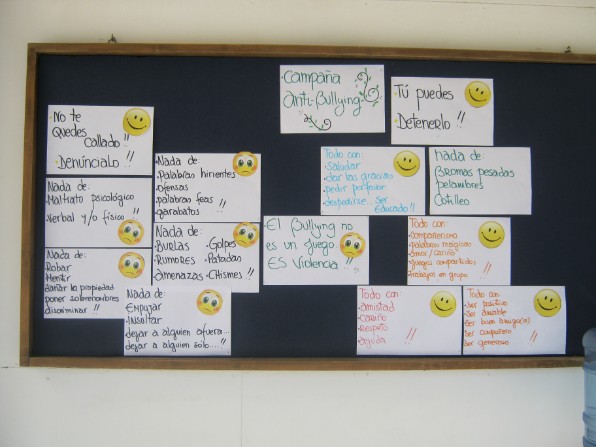 Campaña
anti-Bullying
Tú puedes
Detenerlo!!
No te
Quedes
callado!!
DENÚNCIALO!!
Nada de:
•Palabras hirientes
•ofensas
•palabras feas
•garabatos!!
Todo con:
•saludar
•dar las gracias
•pedir por favor
•despedirse.. ser
Educado!!
nada de
Bromas pesadas
pelambres
Cotilleo
Nada de:
•Maltrato psicológico
•Verbal y/o físico!!
Nada de:
•BURLAS •Golpes
•RUMORES •Patadas
•amenazas •CHismes!!
El Bullying no
es un juego
ES Violencia!!
Todo con
•compañerismo
•palabras mágicas
•amor/cariño
•juegos compartidos
•trabajos en grupo!!
Nada de:
Robar
Mentir
dañar la propiedad
poner sobrenombres
discriminar!!
Nada de:
•Empujar
•Insultar
•dejar a alguien afuera...
•dejar a alguien solo....!!
Todo con:
•amistad
•cariño
•Respeto
•ayuda!!
Todo con:
•Ser positivo
•Ser amable
•Ser buen amigo(a)
•Ser compañero
•Ser generoso!!